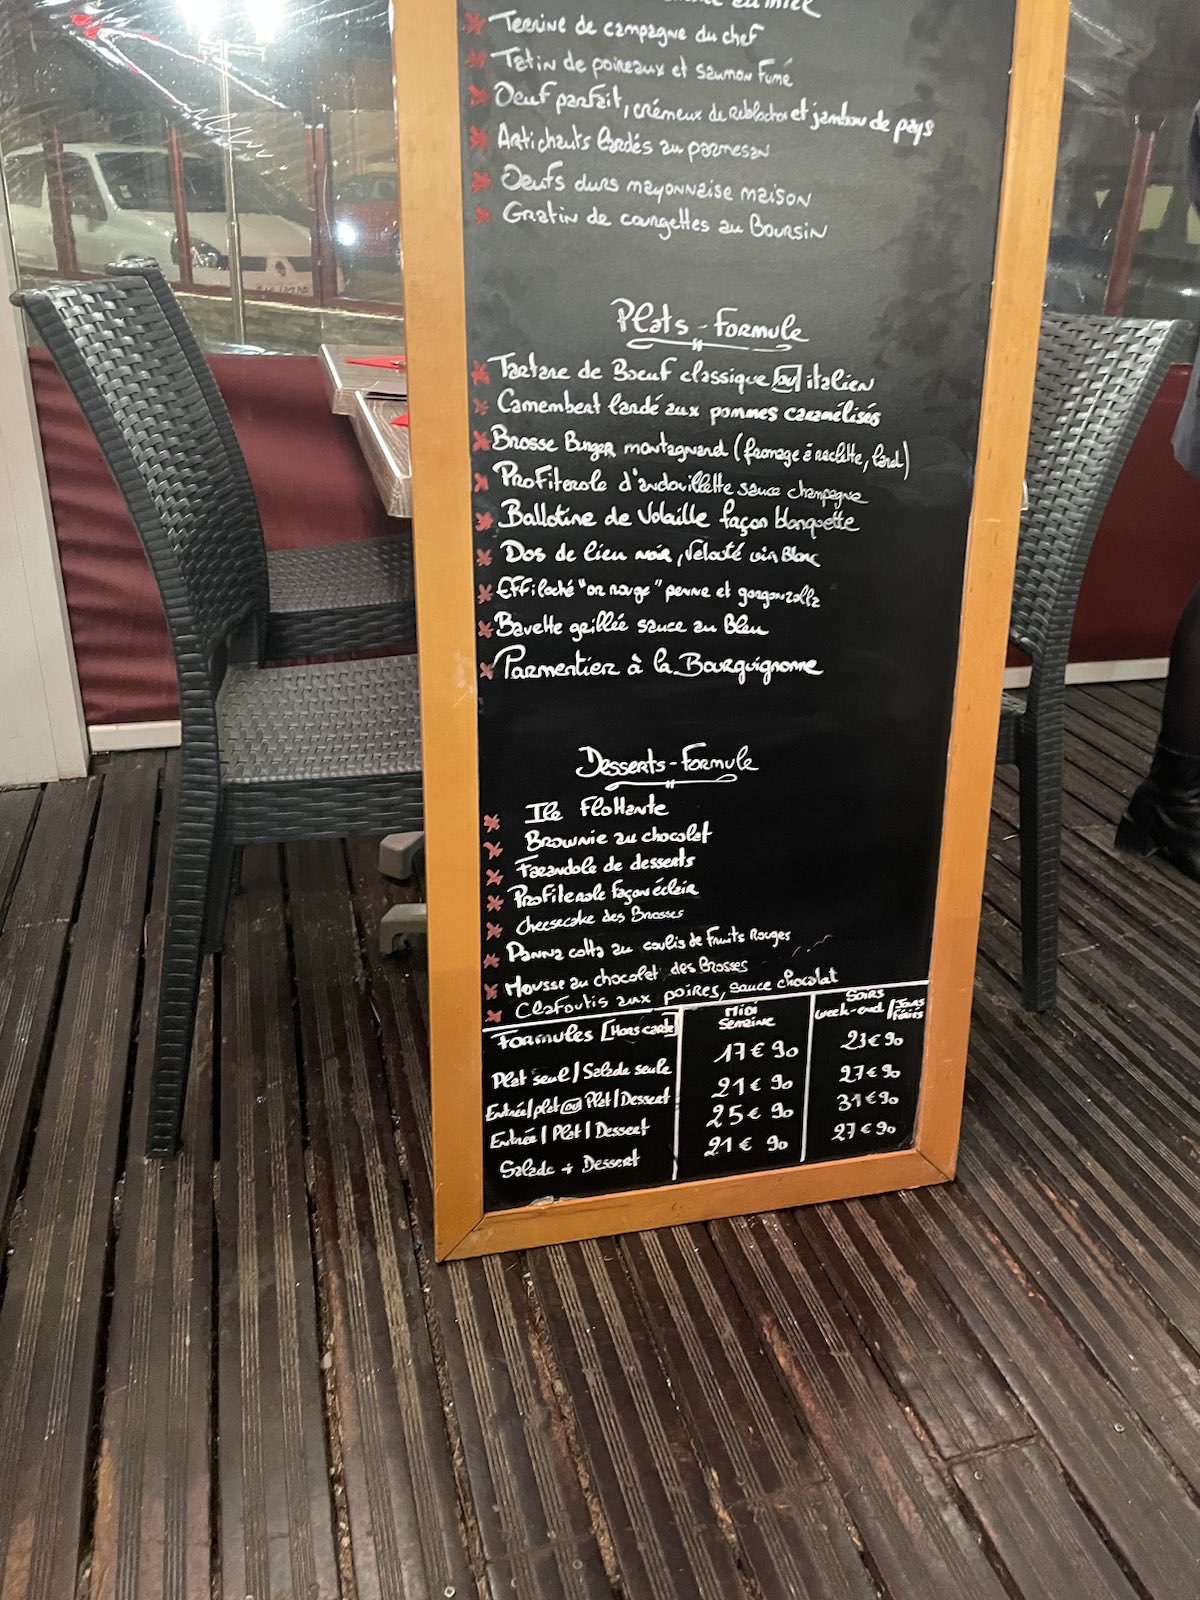 au miel
Terrine de campagne du chef
Tatin de poireaux et saumon Fumé
Oeuf parfait, crémeux de Reblochon et jambon de pays
Artichauts lardés au parmesan
Oeufs durs mayonnaise maison
Gratin de courgettes au Boursin
Plats - Formule
Tartare de Boeuf classique ou italien
Camembert lardé aux pommes caramélisés
Brosse Burger montagnard (fromage à raclette, lard)
Profiterole d'andouillette sauce champagne
Ballotine de Volaille façon blanquette
Dos de lieu noir, Velouté vin Blanc
Effiloché "or rouge" penne et gorgonzolla
Bavette grillée sauce au Bleu
Parmentier à la Bourguignonne
Desserts - Formule
Ile Flottante
Brownie au chocolat
Farandole de desserts
Profiterole façon éclair
Cheesecake des Brosses
Panna cotta au coulis de Fruits Rouges
Mousse au chocolat des Brosses
Clafoutis aux poires, sauce chocolat
Formules [Hors carte]
Midi
Semaine
Soirs
week-end / Jours Fériés
Plat seul / Salade seule 17€90 23€90
Entrée/plat ou Plat/Dessert 21€90 27€90
Entrée / Plat / Dessert 25€90 31€90
Salade + Dessert 21€90 27€90